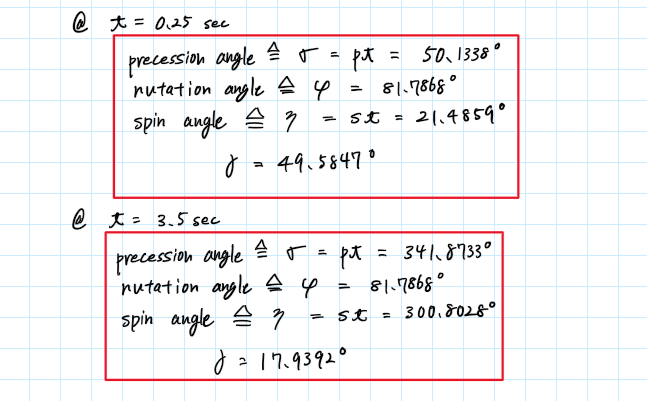 @ t = 0.25 sec
precession angle ≜ σ = pt = 50.1338°
nutation angle ≜ φ = 81.7868°
spin angle ≜ η = st = 21.4859°
γ = 49.5847°
@ t = 3.5 sec
precession angle ≜ σ = pt = 341.8733°
nutation angle ≜ φ = 81.7868°
spin angle ≜ η = st = 300.8028°
γ = 17.9392°